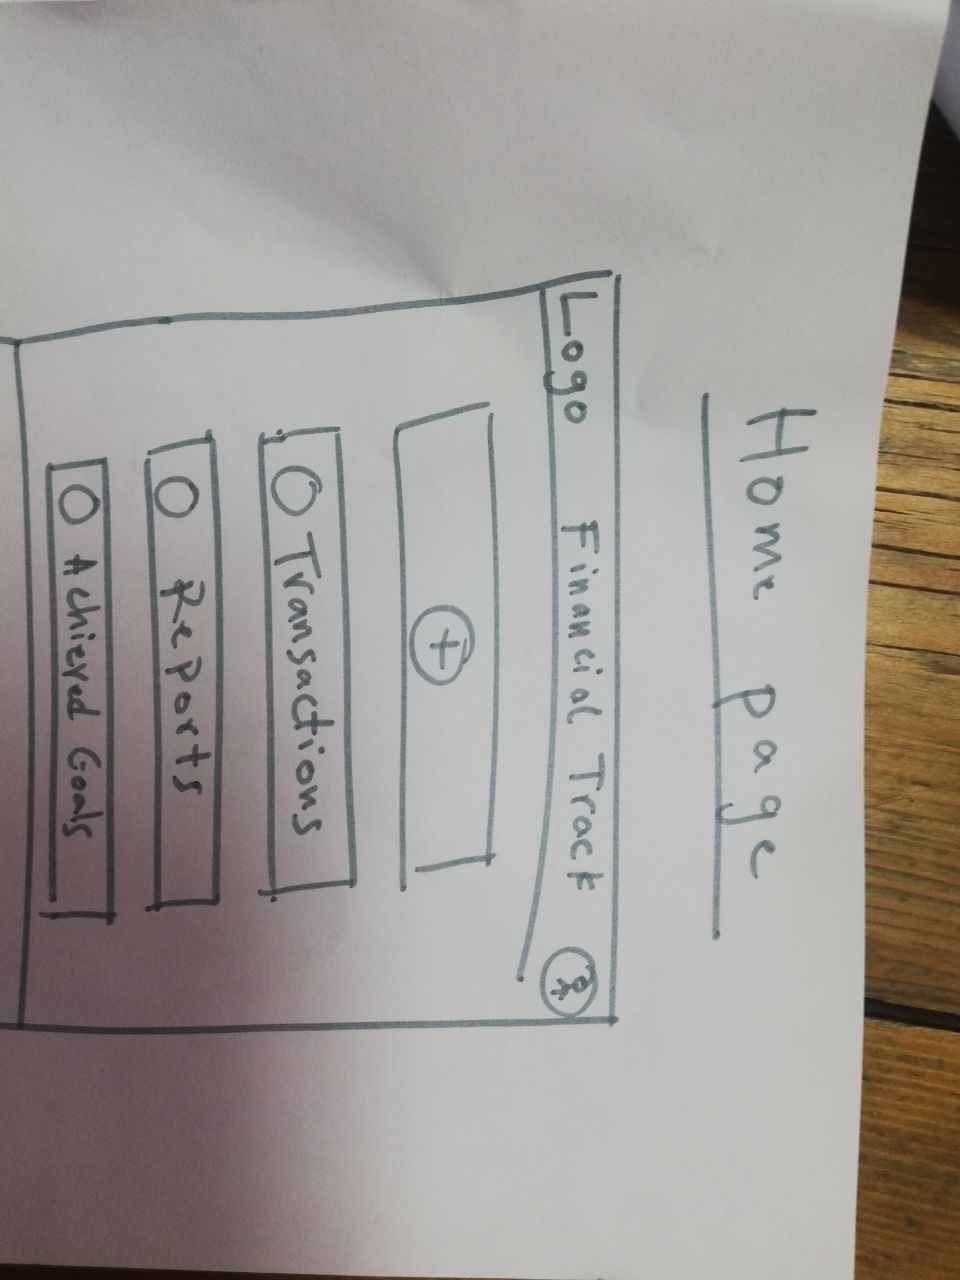 Home page
Logo Financial Track
+
Transactions
Reports
Achieved Goals